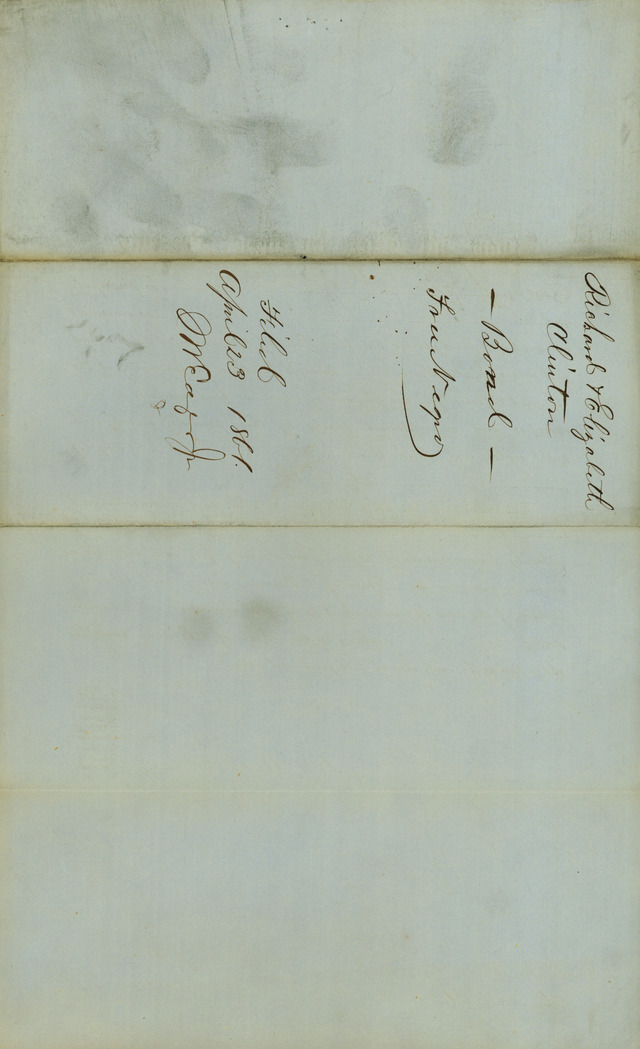 Richard & Elizabeth
Clinton
— Bond —
Free Negro
Filed
April 23 1861.